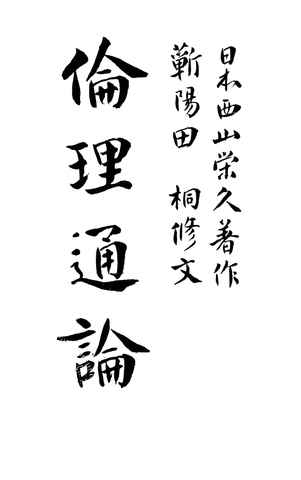 日本西山荣久著作
蘄陽田 桐修文
倫理通論